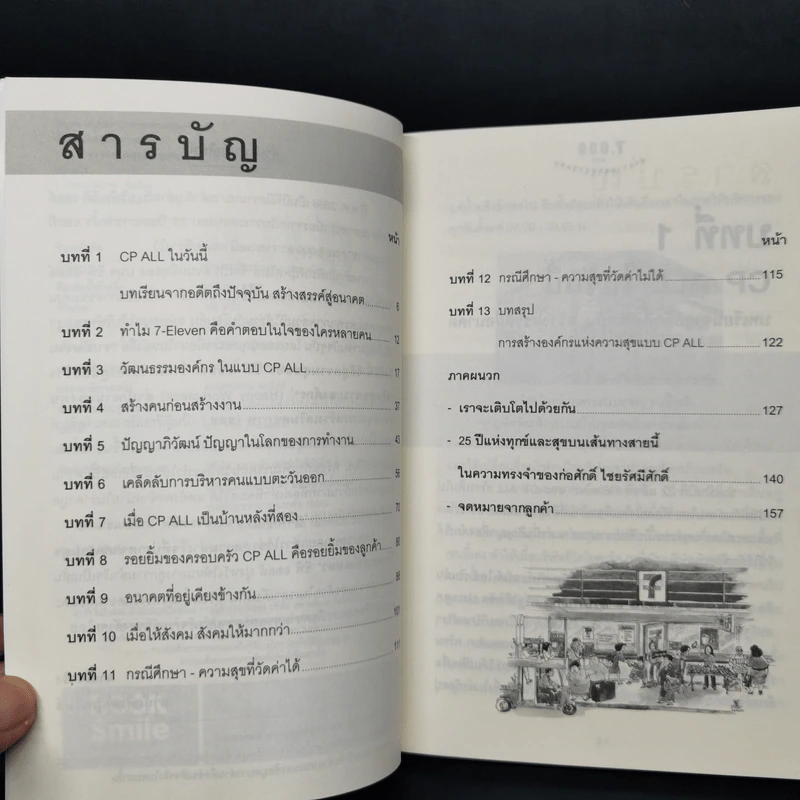 สารบัญ
หน้า
บทที่ 1 CP ALL ในวันนี้
บทเรียนจากอดีตถึงปัจจุบัน สร้างสรรค์สู่อนาคต 6
บทที่ 2 ทำไม 7-Eleven คือคำตอบในใจของใครหลายคน 12
บทที่ 3 วัฒนธรรมองค์กร ในแบบ CP ALL 17
บทที่ 4 สร้างคนก่อนสร้างงาน 37
บทที่ 5 ปัญญาภิวัฒน์ ปัญญาในโลกของการทำงาน 43
บทที่ 6 เคล็ดลับการบริหารคนแบบตะวันออก 56
บทที่ 7 เมื่อ CP ALL เป็นบ้านหลังที่สอง 70
บทที่ 8 รอยยิ้มของครอบครัว CP ALL คือรอยยิ้มของลูกค้า 80
บทที่ 9 อนาคตที่อยู่เคียงข้างกัน
บทที่ 10 เมื่อให้สังคม สังคมให้มากกว่า 101
บทที่ 11 กรณีศึกษา - ความสุขที่วัดค่าได้ 111
หน้า
บทที่ 12 กรณีศึกษา - ความสุขที่วัดค่าไม่ได้ 115
บทที่ 13 บทสรุป
การสร้างองค์กรแห่งความสุขแบบ CP ALL 122
ภาคผนวก
- เราจะเติบโตไปด้วยกัน 127
- 25 ปีแห่งทุกข์และสุขบนเส้นทางสายนี้
ในความทรงจำของก่อศักดิ์ ไชยรัศมีศักดิ์ 140
- จดหมายจากลูกค้า 157